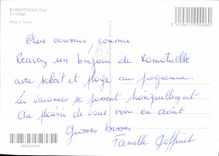 RAMATUELLE (Var)
Chers cousins, cousine
Recevez un bonjour de Ramatuelle
avec soleil et plage au programme.
Les vacances se passent tranquillement
Au plaisir de vous voir en août
Grosses bises
Famille